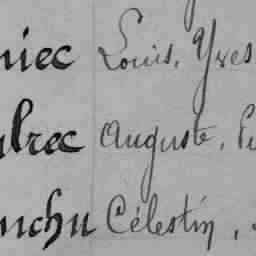 niec Louis, Yves
lrec Auguste,
nchu Célestin,